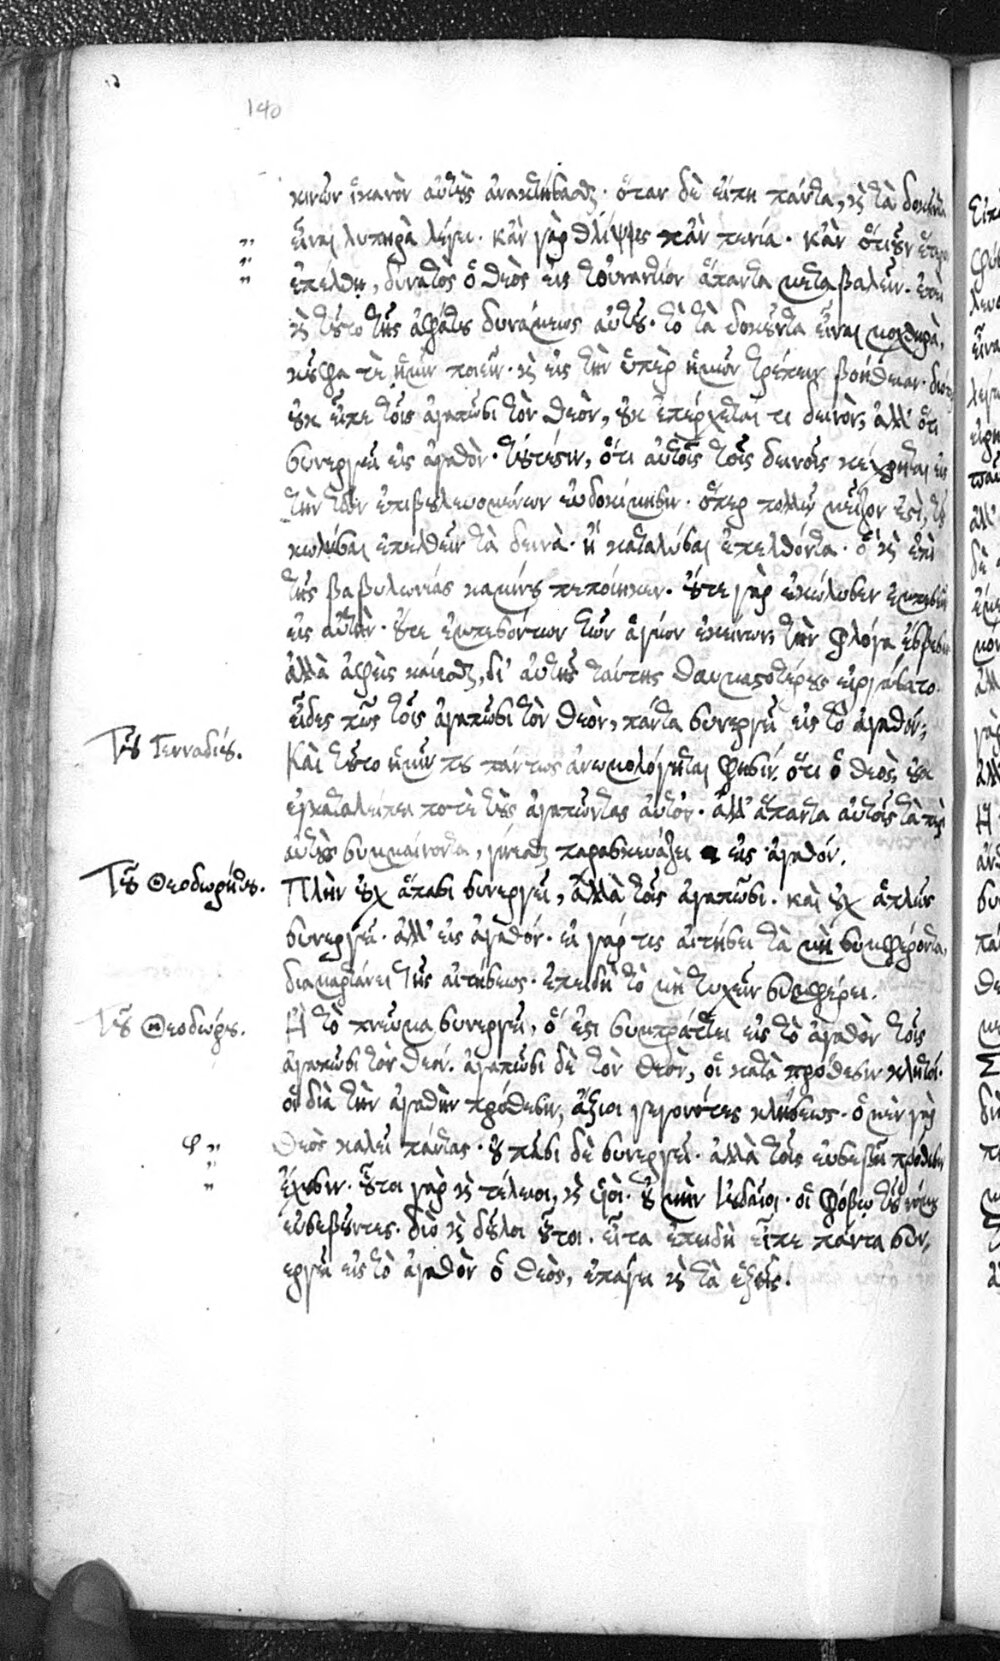 140
κινῶν ἱκανὸν αὐτοὺς ἀνακτήσασθαι· ὅταν δὲ εἴπῃ πάντα, καὶ τὰ δοκοῦντα
εἶναι λυπηρὰ λέγει. κἂν γὰρ θλίψις κἂν πενία. κἂν ὁτιοῦν ἕτερον
ἐπέλθῃ, δυνατὸς ὁ θεὸς εἰς τοὐναντίον ἅπαντα μεταβαλεῖν. ἐπεὶ
καὶ τοῦτο τῆς ἀφάτου δυνάμεως αὐτοῦ· τὸ τὰ δοκοῦντα εἶναι μοχθηρὰ,
κοῦφα τὲ ἡμῖν ποιεῖν. καὶ εἰς τὴν ὑπὲρ ἡμῶν τρέπειν βοήθειαν. διὸ
οὐκ εἶπε τοῖς ἀγαπῶσι τὸν θεὸν, οὐκ ἐπέρχεταί τι δεινὸν, ἀλλ' ὅτι
συνεργεῖ εἰς ἀγαθὸν· τουτέστιν, ὅτι αὐτοῖς τοῖς δεινοῖς κέχρηται εἰς
τὴν τῶν ἐπιβουλευομένων εὐδοκίμησιν. ὅπερ πολλῷ μεῖζον ἐστὶ, τοῦ
κωλῦσαι ἐπελθεῖν τὰ δεινὰ· ἢ καταλῦσαι ἐπελθόντα. ὃ καὶ ἐπὶ
τῆς βαβυλωνίας καμίνου πεποίηκεν. οὔτε γὰρ ἐκώλυσεν ἐμπεσεῖν
εἰς αὐτήν. οὔτε ἐμπεσόντων τῶν ἁγίων ἐκείνων, τὴν φλόγα ἔσβεσεν
ἀλλὰ ἀφεὶς καίεσθαι, δι' αὐτῆς ταύτης θαυμαστοτέρους εἰργάσατο.
εἶδες πῶς τοῖς ἀγαπῶσι τὸν θεὸν, πάντα συνεργεῖ εἰς τὸ ἀγαθόν;
Τοῦ Γενναδίου.
Καὶ τοῦτο ἡμῖν που πάντως ἀνωμολόγηται φησίν, ὅτι ὁ θεὸς οὐκ
ἐγκαταλείπει ποτὲ τοὺς ἀγαπῶντας αὐτόν. ἀλλ' ἅπαντα αὐτοῖς τὰ περὶ
αὐτοὺς συμβαίνοντα, γίνεσθαι παρασκευάζει εἰς ἀγαθόν.
Τοῦ Θεοδωρήτου.
Πλὴν οὐχ ἅπασι συνεργεῖ, ἀλλὰ τοῖς ἀγαπῶσι. καὶ οὐχ ἁπλῶς
συνεργεῖ. ἀλλ' εἰς ἀγαθόν. εἰ γάρ τις αἰτήσει τὰ μὴ συμφέροντα,
διαμαρτάνει τῆς αἰτήσεως. ἐπειδὴ τὸ μὴ τυχεῖν συμφέρει.
Τοῦ Θεοδώρου.
Ἢ τὸ πνεῦμα συνεργεῖ, ὅ ἐστι συμπράττει εἰς τὸ ἀγαθὸν τοῖς
ἀγαπῶσι τὸν θεόν. ἀγαπῶσι δὲ τὸν θεὸν, οἱ κατὰ πρόθεσιν κλητοί.
οἱ διὰ τὴν ἀγαθὴν πρόθεσιν, ἄξιοι γεγονότες κλήσεως. ὁ μὲν γὰρ
θεὸς καλεῖ πάντας. οὐ πᾶσι δὲ συνεργεῖ. ἀλλὰ τοῖς εὐσεβῆ πρόθεσιν
ἔχουσιν. οὗτοι γὰρ καὶ τέλειοι, καὶ υἱοί. οὐ μὴν ἰουδαῖοι. οἱ φόβῳ τοῦ νόμου
εὐσεβοῦντες. διὸ καὶ δοῦλοι οὗτοι. εἶτα ἐπειδὴ εἶπε πάντα συν-
εργεῖ εἰς τὸ ἀγαθὸν ὁ θεὸς, ἐπάγει καὶ τὰ ἑξῆς.